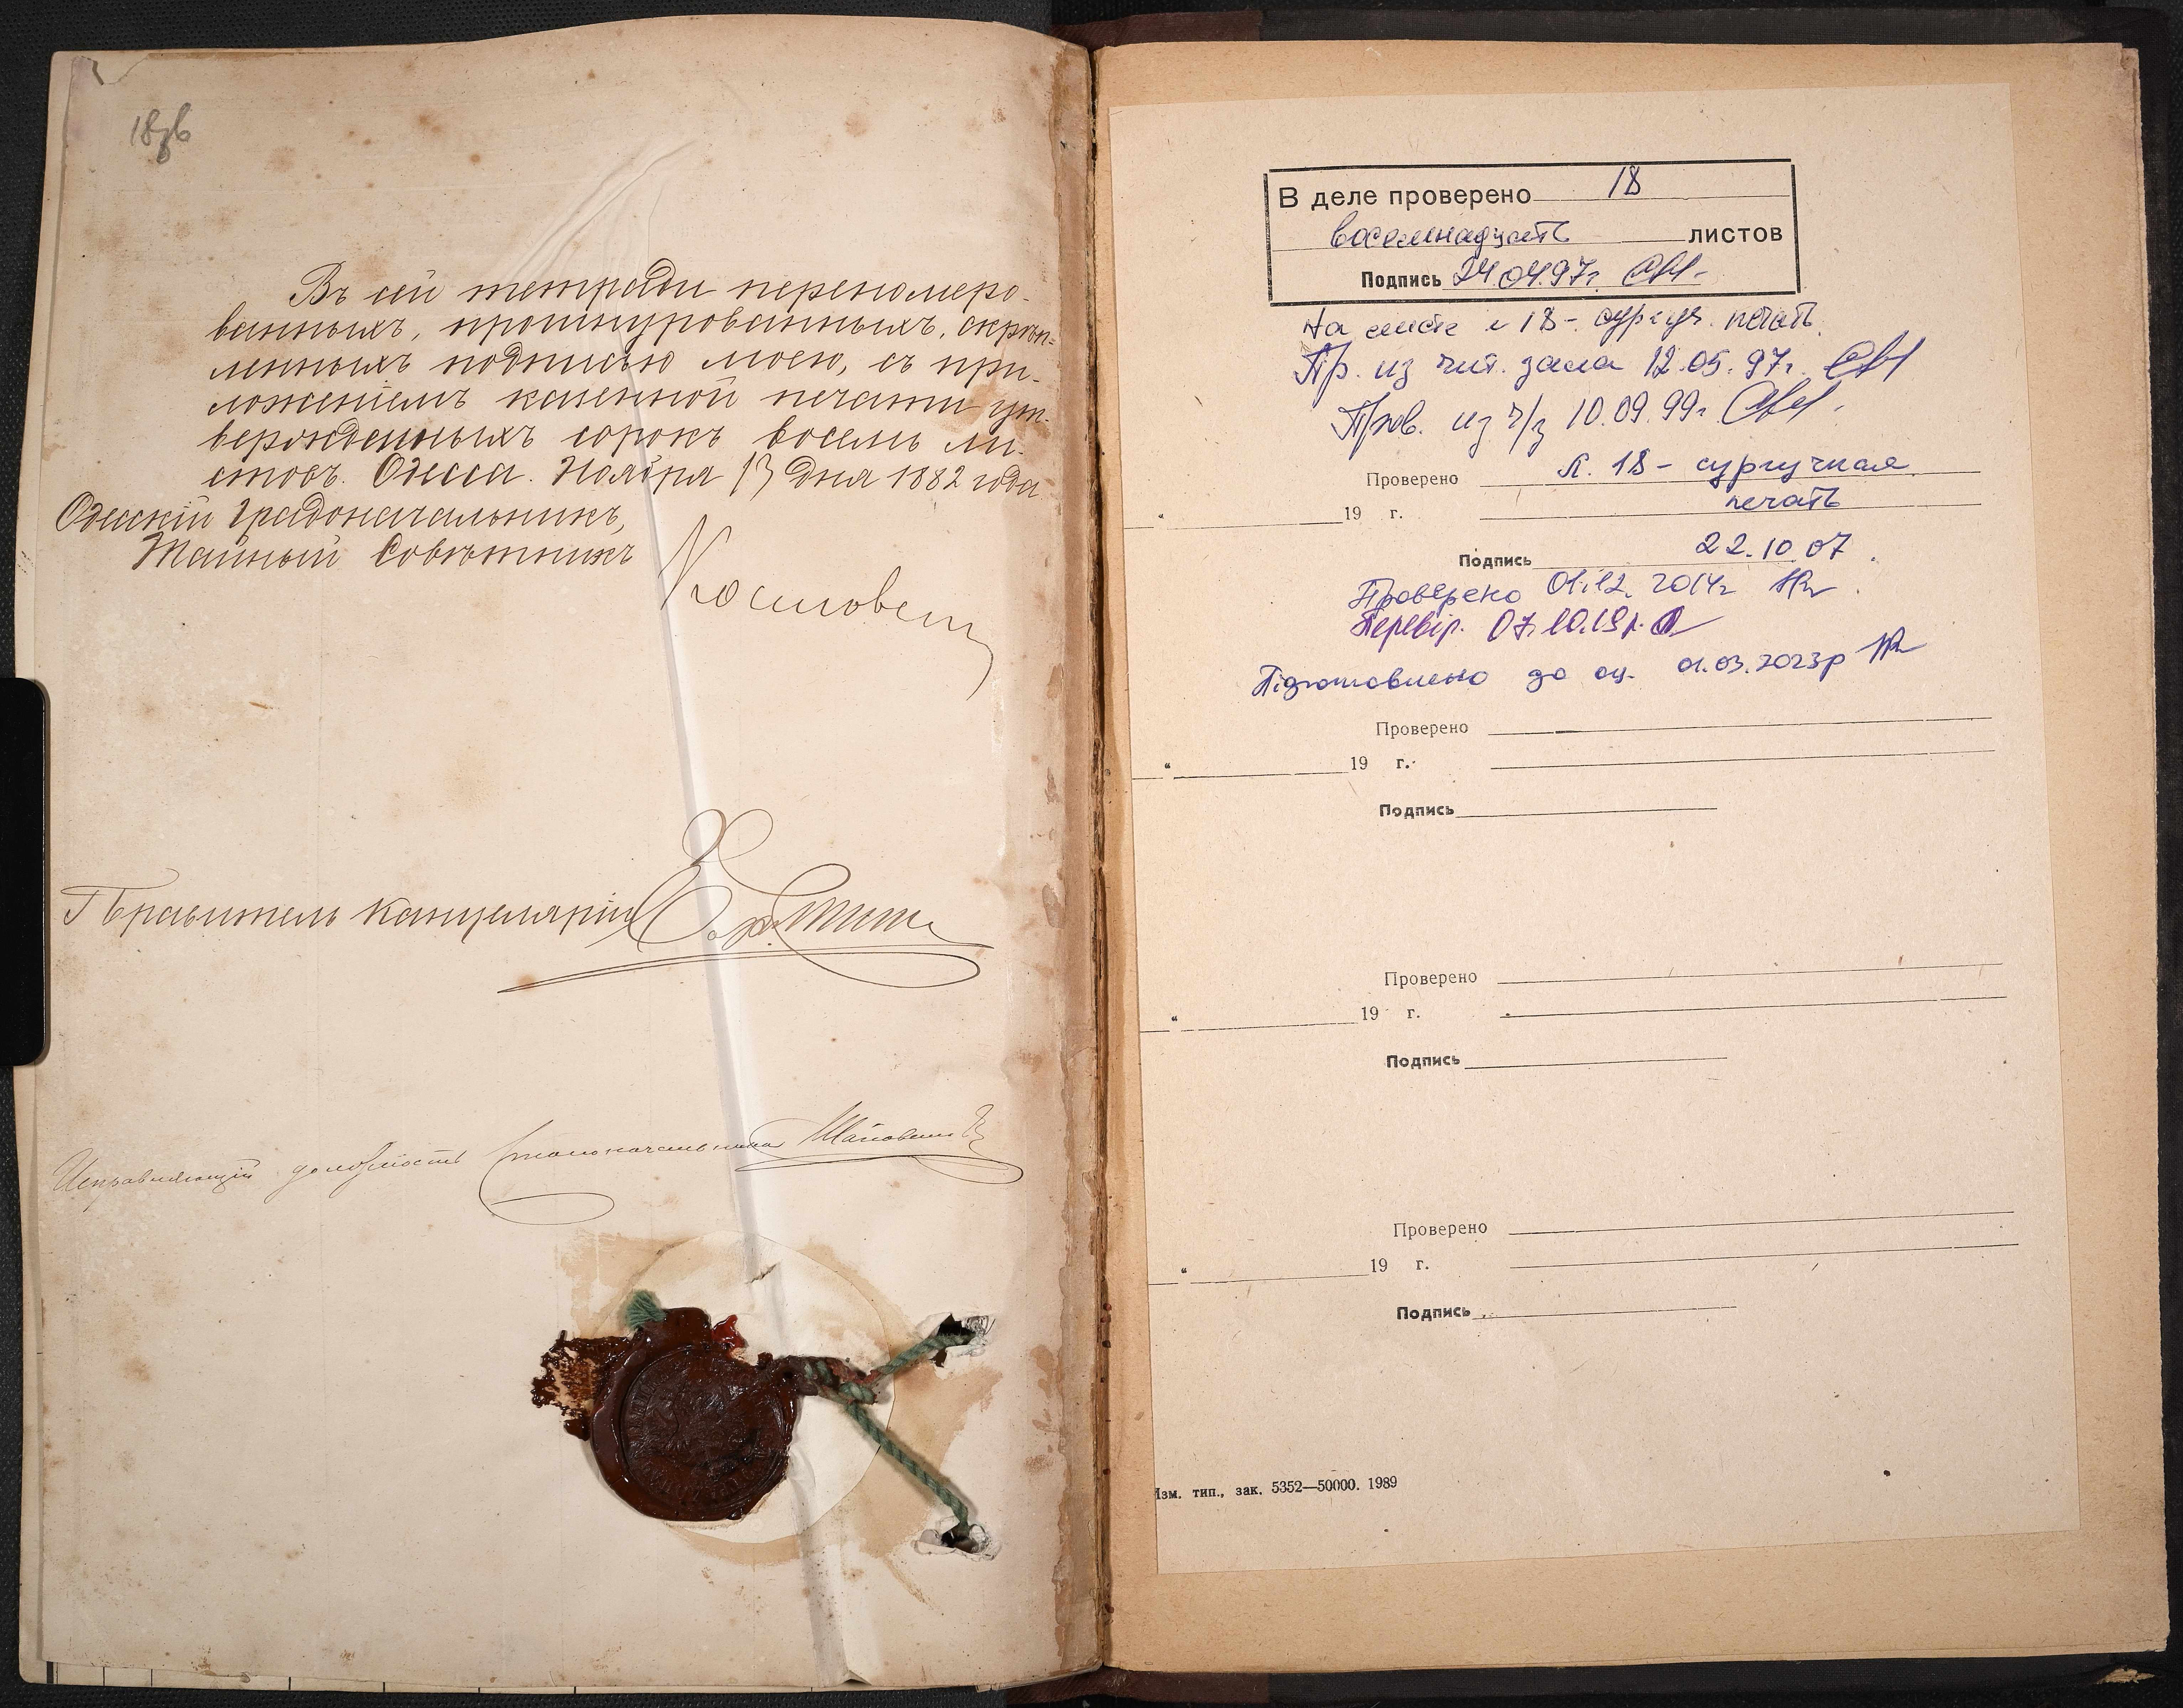 18зв
Въ сей тетради перенумеро-
ванныхъ, прошнурованныхъ, скрѣп-
ленныхъ подписью моею, съ при-
ложеніемъ казенной печати ут-
вержденныхъ сорокъ восемь ли-
стовъ. Одесса. Ноября 13 дня 1882 года
Одесскій Градоначальникъ,
Тайный Совѣтникъ
Правитель Канцеляріи
Исправляющій должность Столоначальника
В деле проверено 18
восемнадцать листов
Подпись 24.04.97г.
На листе № 18 - сургуч. печать.
Пр. из чит. зала 12.05.97г.
Пров. из ч/з 10.09.99г.
Проверено л. 18 - сургучная
" 19 г. печать
Подпись 22.10.07
Проверено 01.12.2014г
Перевір. 07.10.19р.
Підготовлено до оц. 01.03.2023р
Проверено
" 19 г.
Подпись
Проверено
" 19 г.
Подпись
Проверено
" 19 г.
Подпись
Изм. тип., зак. 5352—50000. 1989